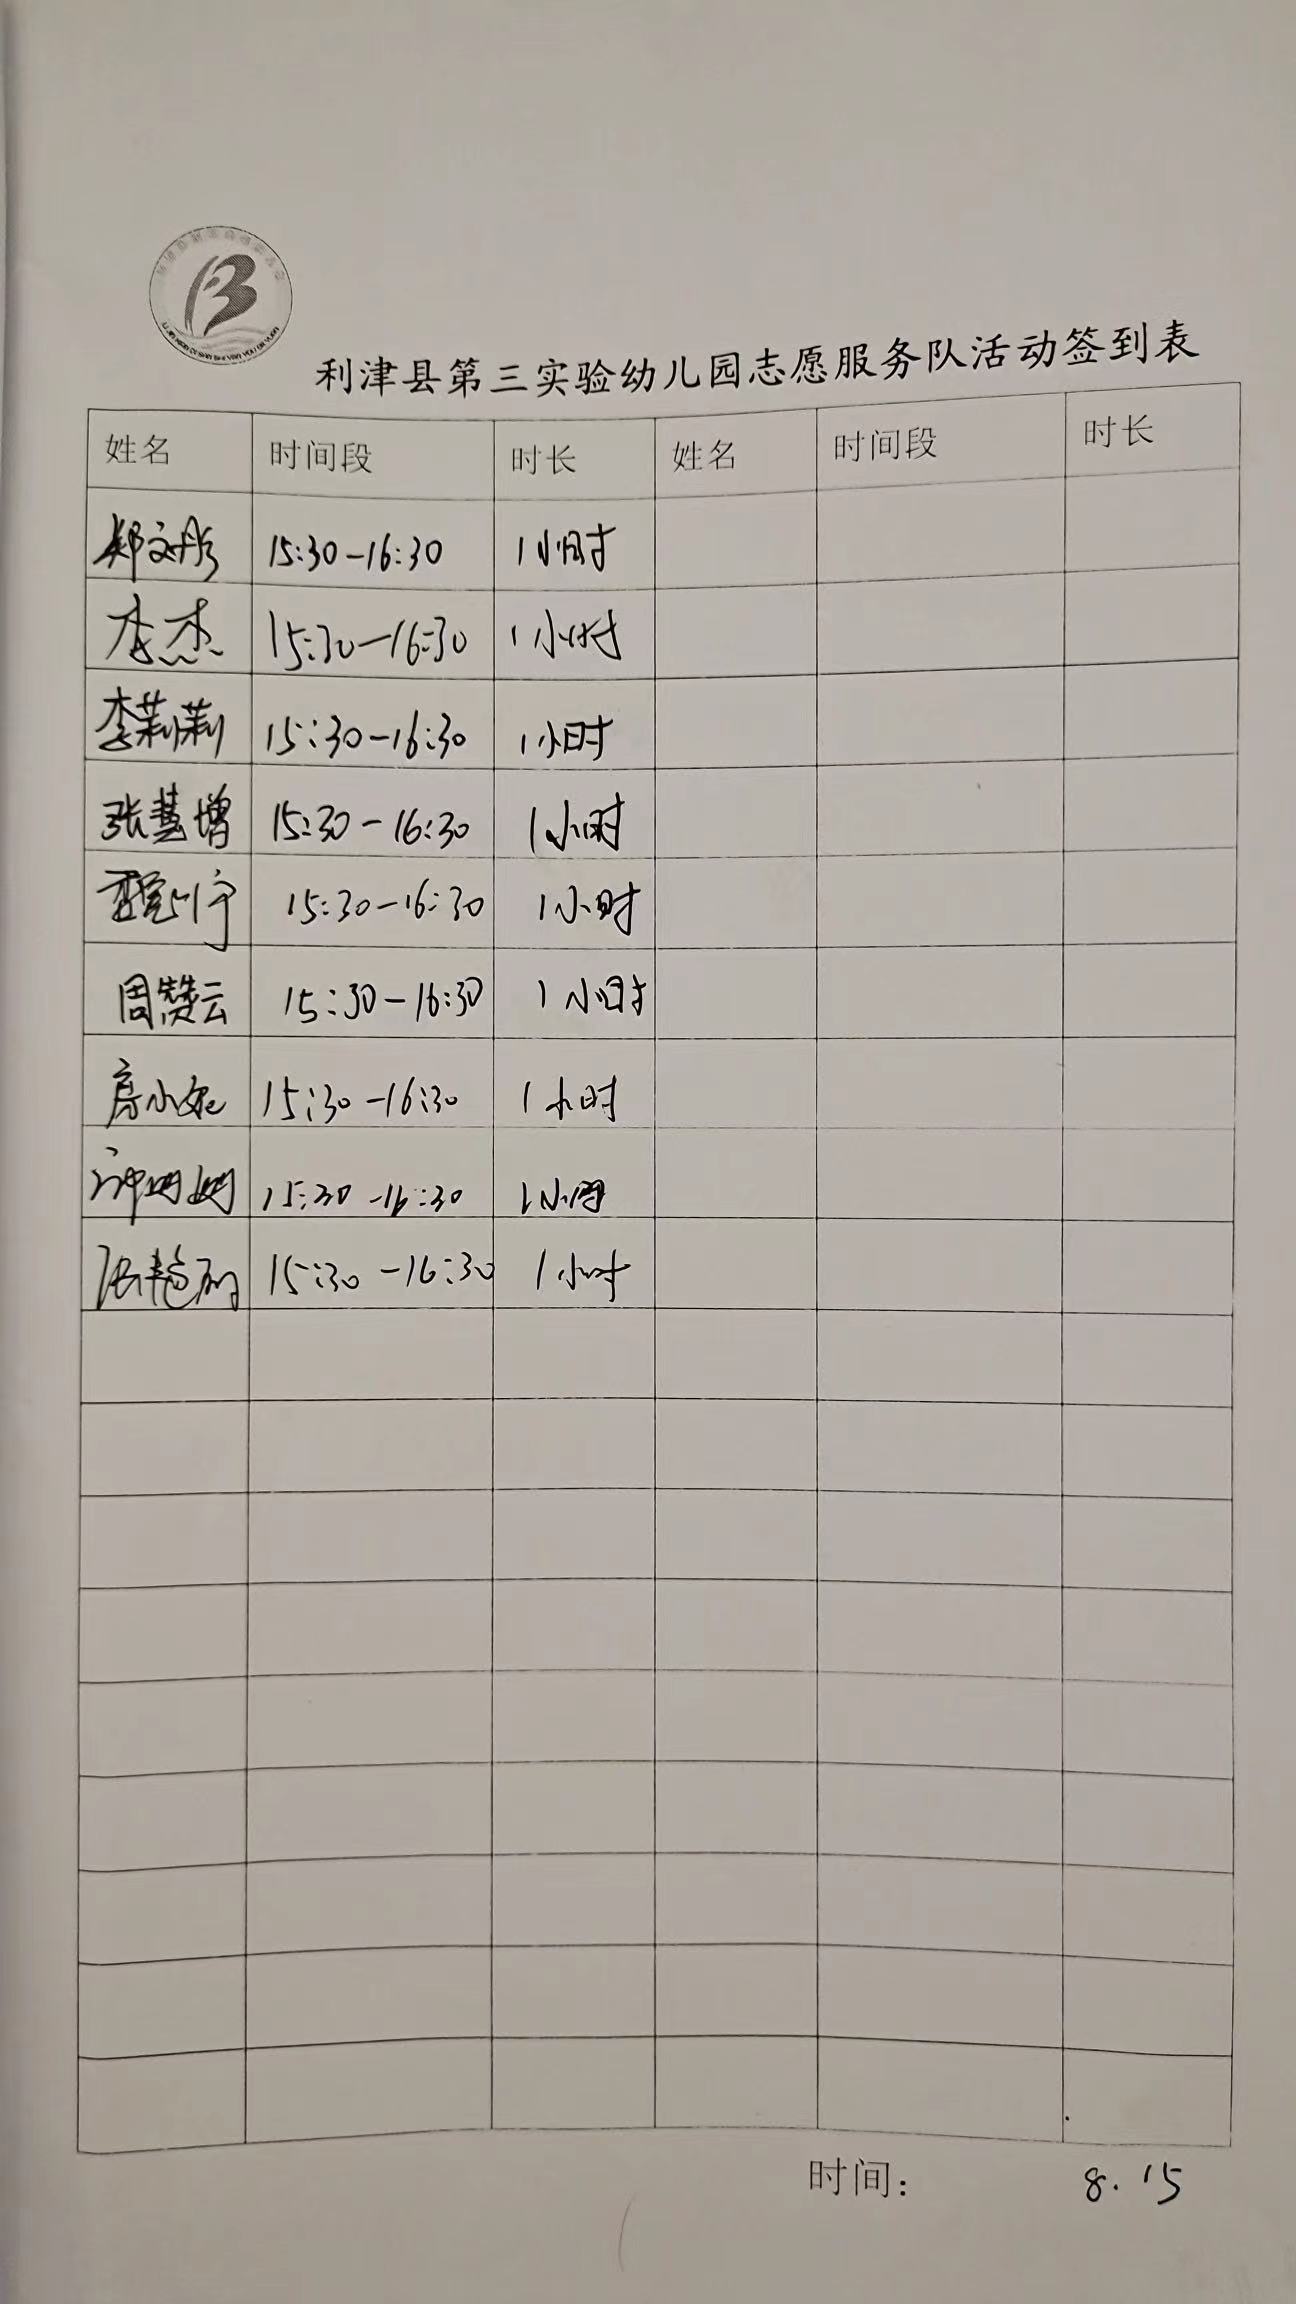 利津县第三实验幼儿园志愿服务队活动签到表
姓名 时间段 时长 姓名 时间段 时长
郑文彤 15:30-16:30 1小时
李杰 15:30-16:30 1小时
李莉莉 15:30-16:30 1小时
张慧增 15:30-16:30 1小时
15:30-16:30 1小时
周赞云 15:30-16:30 1小时
房小妮 15:30-16:30 1小时
15:30-16:30 1小时
张艳丽 15:30-16:30 1小时
时间: 8.15